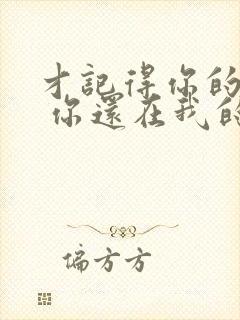 才記得你的
你還在我的
偏方方